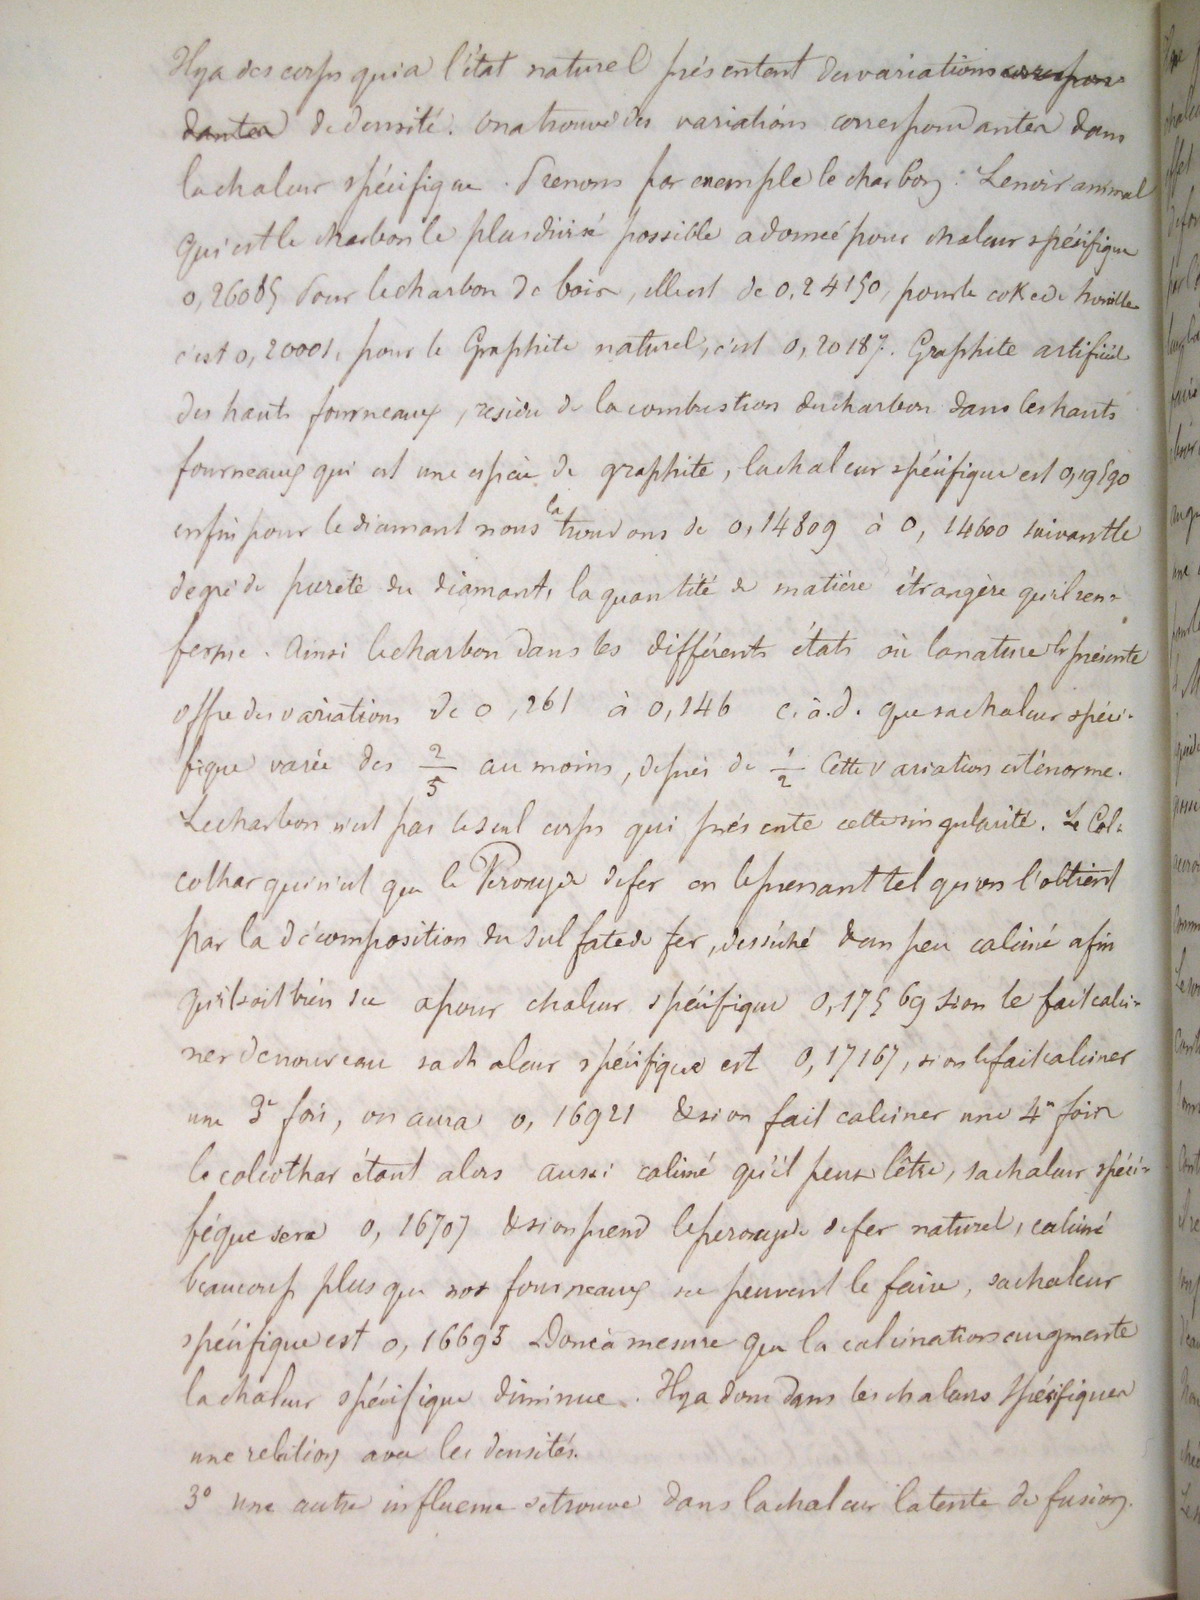 Il y a des corps qui à l'état naturel présentent des variations correspon-
dantes de densité. On a trouvé des variations correspondantes dans
la chaleur spécifique. Prenons par exemple le charbon : Le noir animal
qui est le charbon le plus divisé possible a donné pour chaleur spécifique
0,26085 Pour le charbon de bois, elle est de 0,24150, pour le coke de houille
c'est 0,20001, pour le Graphite naturel, c'est 0,20187. Graphite artificiel
des hauts fourneaux, résidu de la combustion du charbon dans les hauts
fourneaux qui est une espèce de graphite, la chaleur spécifique est 0,19590
enfin pour le diamant nous la trouvons de 0,14809 à 0,14600 suivant le
degré de pureté du diamant, la quantité de matière étrangère qu'il ren-
ferme. Ainsi le charbon dans les différents états où la nature le présente
offre des variations de 0,261 à 0,146 c.à.d. que sa chaleur spéci-
fique varie des 2/5 au moins, de près de 1/2 Cette variation est énorme.
Le charbon n'est pas le seul corps qui présente cette singularité. Le Col-
cothar qui n'est que le Peroxyde de fer en le prenant tel qu'on l'obtient
par la décomposition du sulfate de fer, desséché d'un peu calciné afin
qu'il soit bien sec a pour chaleur spécifique 0,17569 si on le fait calci-
ner de nouveau sa chaleur spécifique est 0,17167, si on le fait calciner
une 3e fois, on aura 0,16921 & si on fait calciner une 4e fois
le colcothar étant alors aussi calciné qu'il peut l'être, sa chaleur spéci-
fique sera 0,16707 & si on prend le peroxyde de fer naturel, calciné
beaucoup plus que nos fourneaux ne peuvent le faire, sa chaleur
spécifique est 0,16695 Donc à mesure que la calcination augmente
la chaleur spécifique diminue. Il y a donc dans les chaleurs spécifiques
une relation avec les densités.
3° Une autre influence se trouve dans la chaleur latente de fusion.